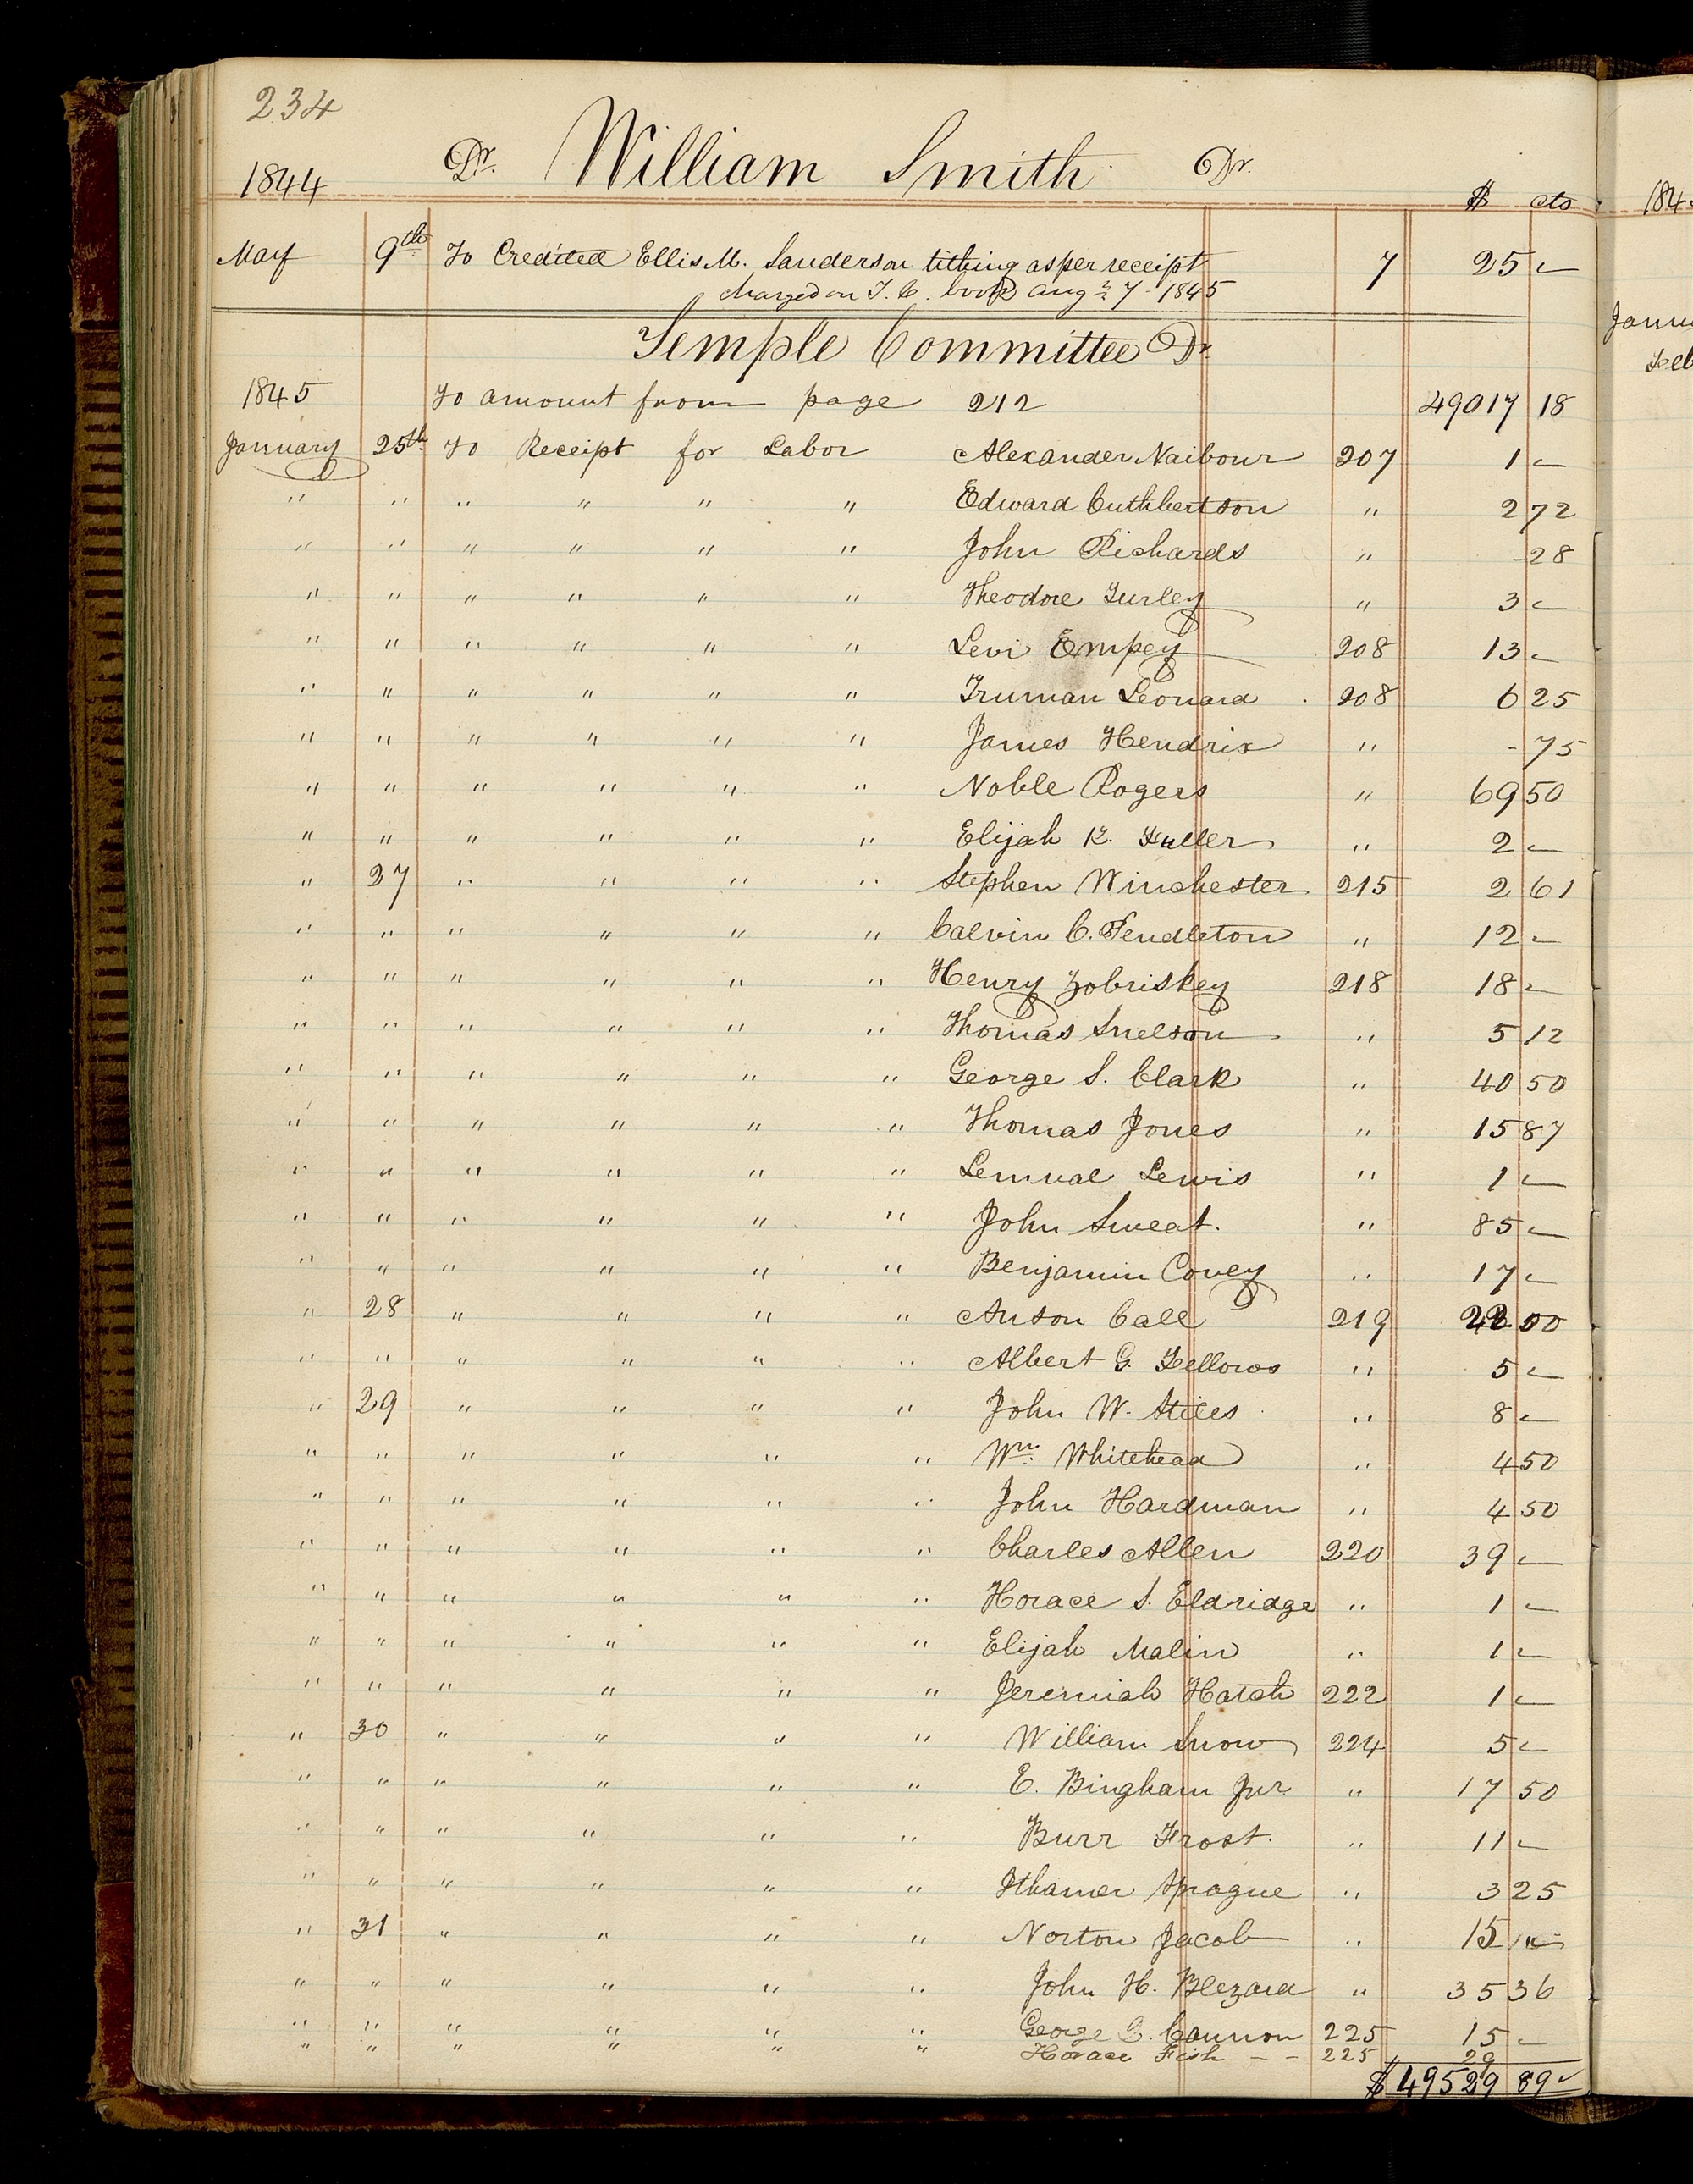 234
1844 Dr. William Smith Dr.
$ cts
May 9th To Credited Ellis M. Sanderson tithing as per receipt 7 25 –
charged on T. C. book Aug 7 - 1845
Temple Committee Dr
1845 To amount from page 212 49017 18
January 25th To Receipt for Labor Alexander Naibour 207 1 –
" " " " " " Edward Cuthbertson " 2 72
" " " " " " John Richards " - 28
" " " " " " Theodore Turley " 3 –
" " " " " " Levi Empey 208 13 –
" " " " " " Truman Leonard . 208 6 25
" " " " " " James Hendrix " - 75
" " " " " " Noble Rogers " 69 50
" " " " " " Elijah K. Fuller " 2 –
" 27 " " " " Stephen Winchester 215 2 61
" " " " " " Calvin C. Pendleton " 12 –
" " " " " " Henry Zobriskey 218 18 –
" " " " " " Thomas Snelson " 5 12
" " " " " " George S. Clark " 40 50
" " " " " " Thomas Jones " 15 87
" " " " " " Lemual Lewis " 1 –
" " " " " " John Sweat. " 85 –
" " " " " " Benjamin Covey " 17 –
" 28 " " " " Anson Call 219 22 00
" " " " " " Albert G. Fellows " 5 –
" 29 " " " " John W. Stiles " 8 –
" " " " " " Wm. Whitehead " 4 50
" " " " " " John Hardman " 4 50
" " " " " " Charles Allen 220 39 –
" " " " " " Horace S. Eldridge " 1 –
" " " " " " Elijah Malin " 1 –
" " " " " " Jeremiah Hatch 222 1 –
" 30 " " " " William Snow 224 5 –
" " " " " " E. Bingham Jur. " 17 50
" " " " " " Burr Frost. " 11 –
" " " " " " Ithamer Sprague " 3 25
" 31 " " " " Norton Jacob " 15 "
" " " " " " John H. Blezard " 35 36
" " " " " " George Q. Cannon 225 15 –
" " " " " " Horace Fish – – 225 29
$ 49529 89
1844
Janu
Feb